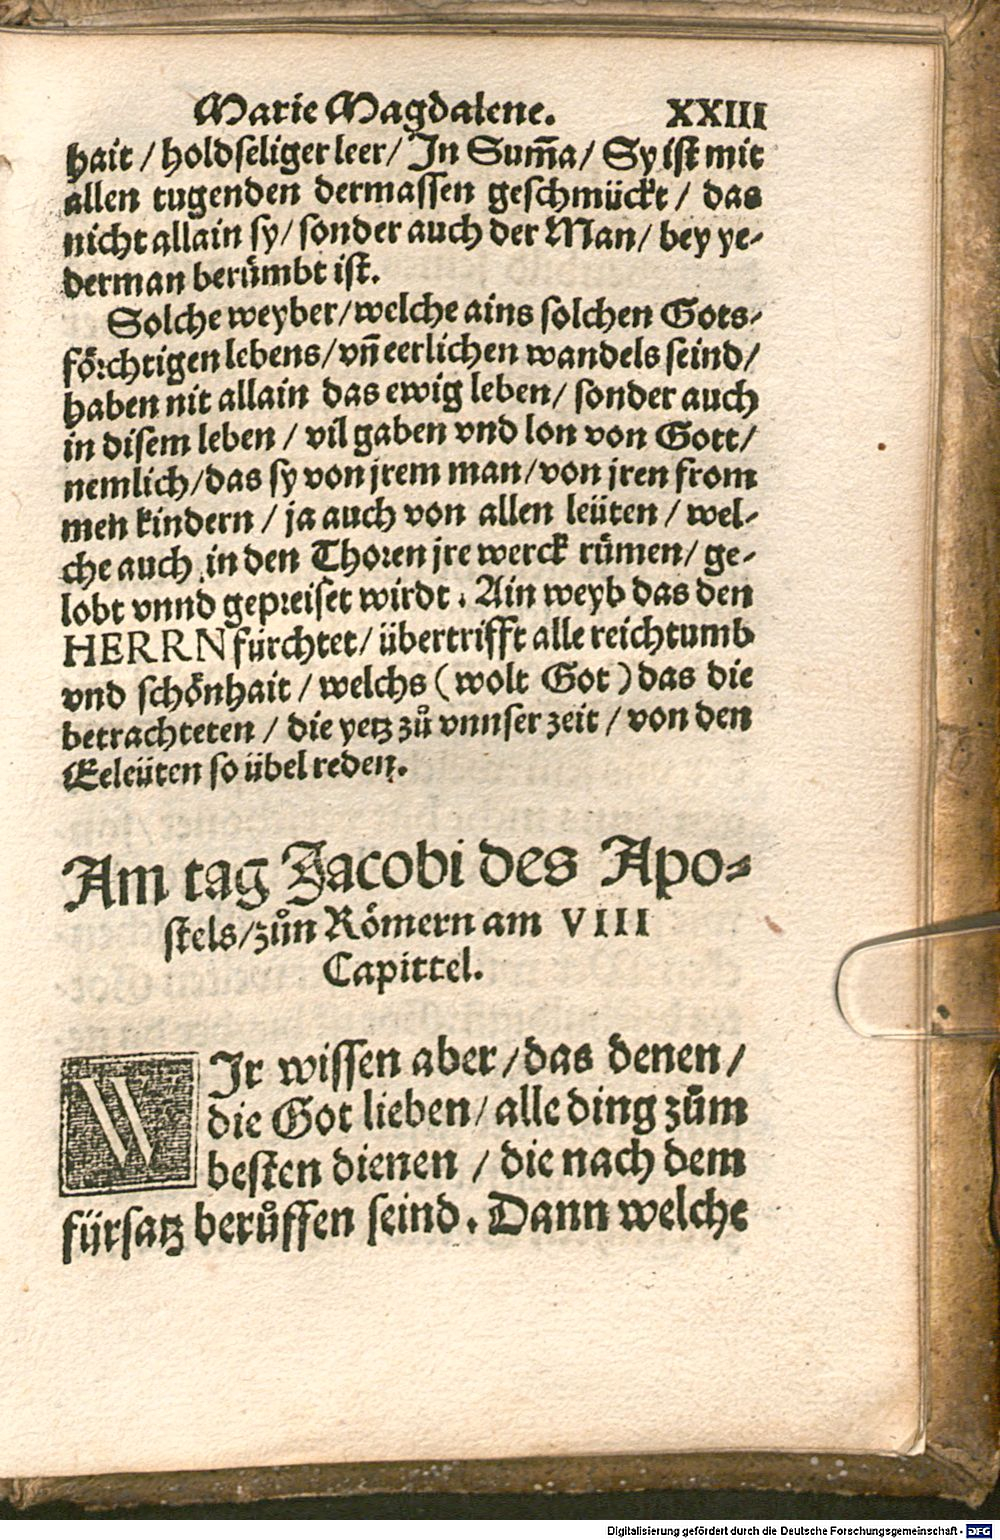 Marie Magdalene. XXIII
hait / holdseliger leer / In Sum̃a / Sy ist mit
allen tugenden dermassen geschmückt / das
nicht allain sy / sonder auch der Man / bey ye-
derman berůmbt ist.
Solche weyber / welche ains solchen Gots-
förchtigen lebens / vñ eerlichen wandels seind /
haben nit allain das ewig leben / sonder auch
in disem leben / vil gaben vnd lon von Gott /
nemlich / das sy von jrem man / von jren from
men kindern / ja auch von allen leüten / wel-
che auch in den Thoren jre werck růmen / ge-
lobt vnnd gepreiset wirdt. Ain weyb das den
HERRN fürchtet / übertrifft alle reichtumb
vnd schönhait / welchs (wolt Got) das die
betrachteten / die yetz zů vnnser zeit / von den
Eeleüten so übel reden.
Am tag Jacobi des Apo-
stels / zůn Römern am VIII
Capittel.
WIr wissen aber / das denen /
die Got lieben / alle ding zům
besten dienen / die nach dem
fürsatz berůffen seind. Dann welche
Digitalisierung gefördert durch die Deutsche Forschungsgemeinschaft - DFG